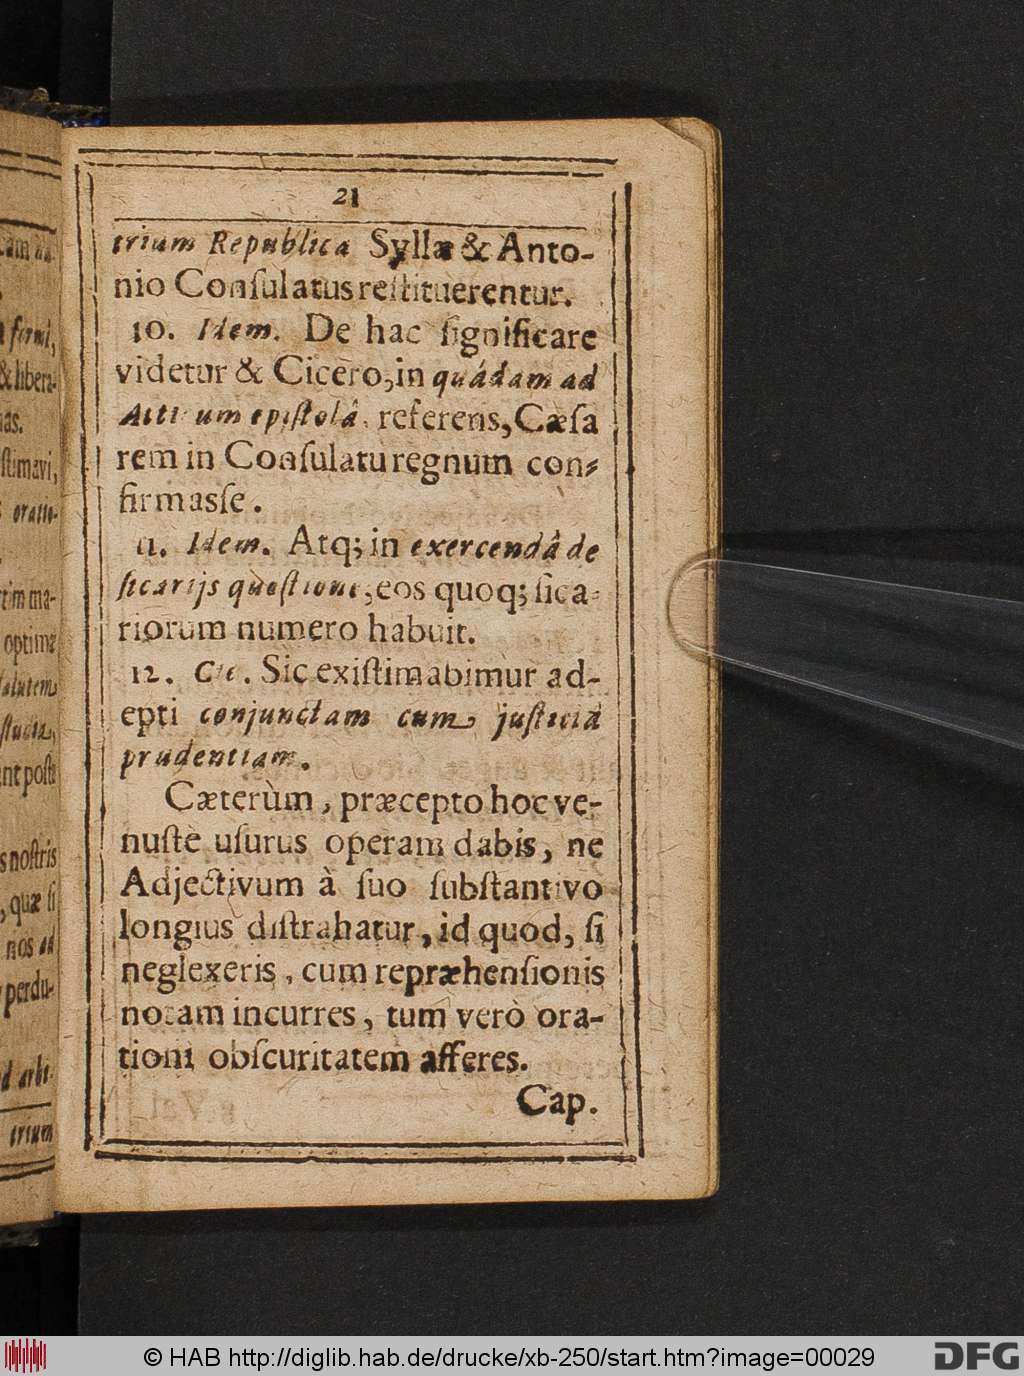 21
trium Republica Syllæ & Anto-
nio Conſulatus reſtituerentur.
10. Idem. De hac ſignificare
videtur & Cicero, in quâdam ad
Atticum epiſtolâ, referens, Cæſa
rem in Conſulatu regnum con-
firmasſe.
11. Idem. Atq; in exercendâ de
ſicarijs quæſtione, eos quoq; ſica-
riorum numero habuit.
12. Cic. Sic exiſtimabimur ad-
epti conjunctam cum juſticiâ
prudentiam.
Cæterùm, præcepto hoc ve-
nuſtè uſurus operam dabis, ne
Adjectivum à ſuo ſubſtantivo
longius diſtrahatur, id quod, ſi
neglexeris, cum repræhenſionis
notam incurres, tum verò ora-
tioni obſcuritatem afferes.
Cap.
& libera-
ſtimavi,
oratio-
optime
ſalutem
nt poſt
s noſtris
, quæ ſi
nos ad
perdu-
d arbi-
trium
© HAB http://diglib.hab.de/drucke/xb-250/start.htm?image=00029
DFG